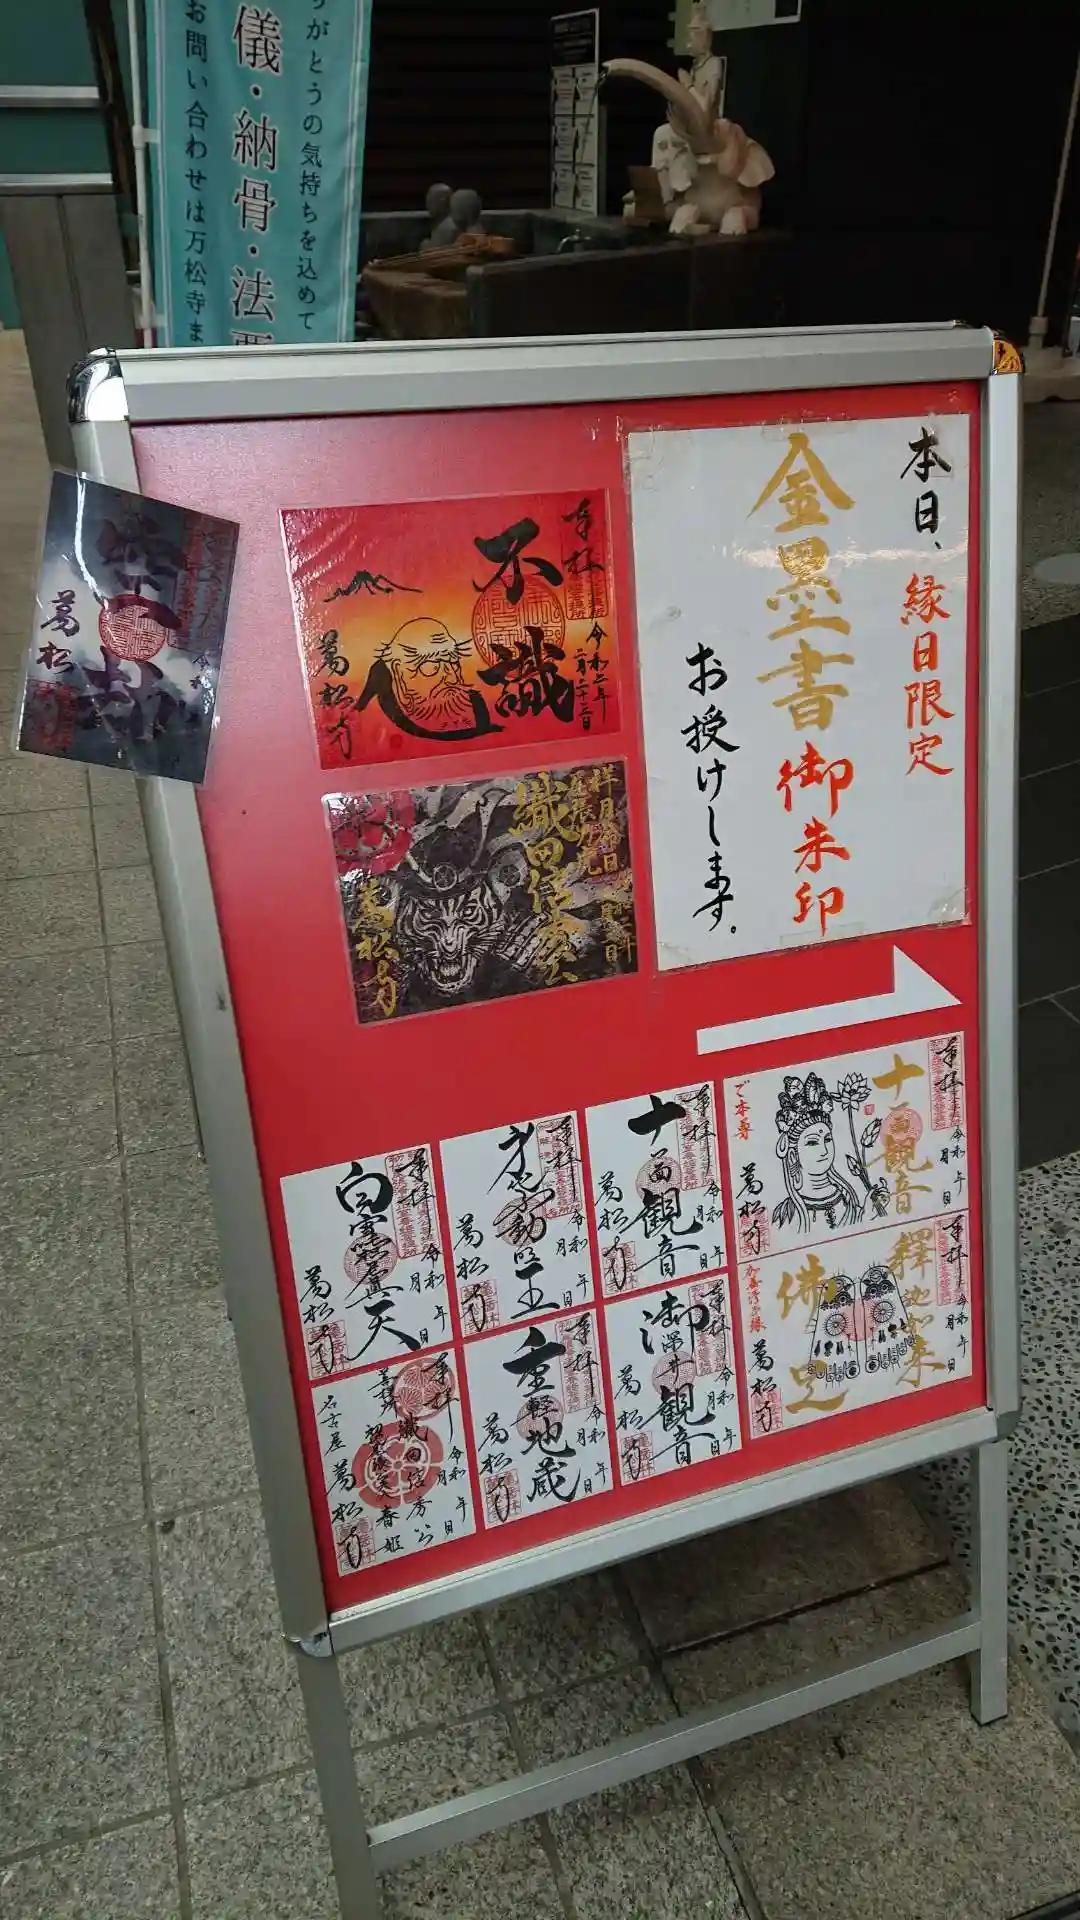 りがとうの気持ちを込めて
儀・納骨・法要
お問い合わせは万松寺ま
本日、縁日限定
金墨書御朱印
お授けします。
奉拝
不識
令和二年
二月二十三日
萬松寺
萬松
祥月命日
尾張乃虎
織田信秀公
萬松寺
奉拝
十一面観音
令和 年 月 日
ご本尊
萬松寺
奉拝
釋迦如来
令和 年 月 日
佛足
萬松寺
奉拝
十一面観音
令和 年 月 日
萬松寺
奉拝
身代不動明王
令和 年 月 日
萬松寺
奉拝
白雪稲荷天
令和 年 月 日
萬松寺
奉拝
御深井観音
令和 年 月 日
萬松寺
奉拝
重軽地蔵
令和 年 月 日
萬松寺
奉拝
令和 年 月 日
織田信秀公
菩提所
春姫
名古屋
萬松寺